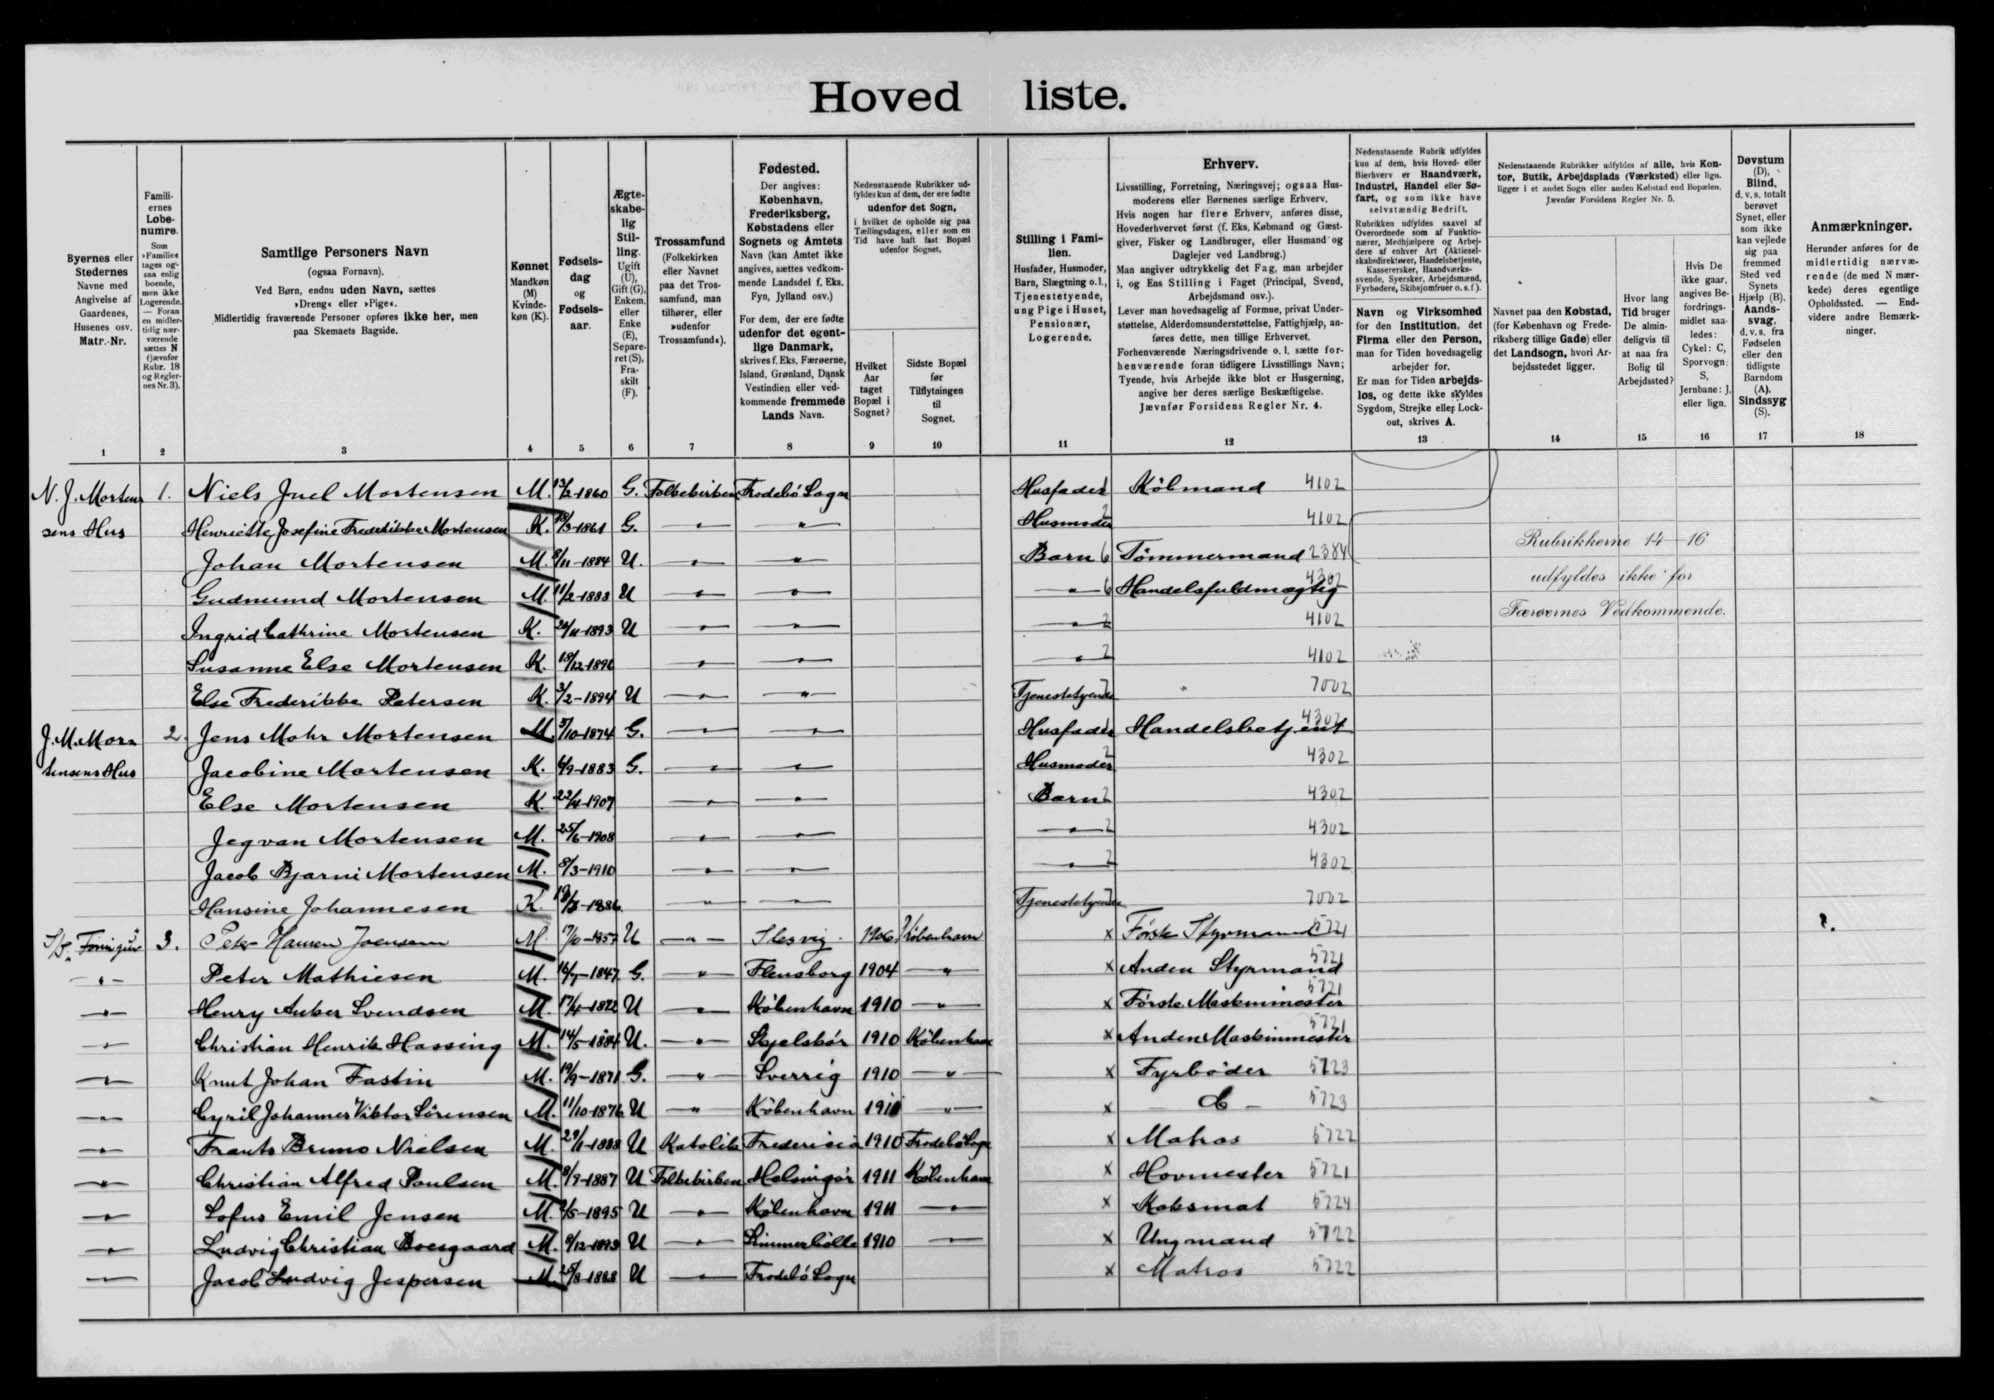 Hoved liste.
Byernes eller Stedernes Navne med Angivelse af Gaardenes, Husenes osv. Matr.-Nr.
Familiernes Løbenumre. Som »Familie« tages ogsaa enlig boende, men ikke Logerende. — Foran en midlertidig nærværende sættes N (jævnfør Rubr. 18 og Reglernes Nr. 3).
Samtlige Personers Navn
(ogsaa Fornavn).
Ved Børn, endnu uden Navn, sættes
»Dreng« eller »Pige«.
Midlertidig fraværende Personer opføres ikke her, men
paa Skemaets Bagside.
Kønnet Mandkøn (M) Kvindekøn (K).
Fødselsdag og Fødselsaar.
Ægteskabelig Stilling. Ugift (U), Gift (G), Enkem. eller Enke (E), Separeret (S), Fraskilt (F).
Trossamfund (Folkekirken eller Navnet paa det Trossamfund, man tilhører, eller »udenfor Trossamfund«).
Fødested.
Der angives: København, Frederiksberg, Købstadens eller Sognets og Amtets Navn (kan Amtet ikke angives, sættes vedkommende Landsdel f. Eks. Fyn, Jylland osv.)
For dem, der ere fødte udenfor det egentlige Danmark, skrives f. Eks. Færøerne, Island, Grønland, Dansk Vestindien eller vedkommende fremmede Lands Navn.
Nedenstaaende Rubrikker udfyldes kun af dem, der ere fødte udenfor det Sogn, i hvilket de opholde sig paa Tællingsdagen, eller som en Tid have haft fast Bopæl udenfor Sognet.
Hvilket Aar taget Bopæl i Sognet?
Sidste Bopæl før Tilflytningen til Sognet.
Stilling i Familien.
Husfader, Husmoder, Barn, Slægtning o. l., Tjenestetyende, ung Pige i Huset, Pensionær, Logerende.
Erhverv.
Livsstilling, Forretning, Næringsvej; ogsaa Husmoderens eller Børnenes særlige Erhverv.
Hvis nogen har flere Erhverv, anføres disse, Hovederhvervet først (f. Eks. Købmand og Gæstgiver, Fisker og Landbruger, eller Husmand og Daglejer ved Landbrug.)
Man angiver udtrykkelig det Fag, man arbejder i, og Ens Stilling i Faget (Principal, Svend, Arbejdsmand osv.).
Lever man hovedsagelig af Formue, privat Understøttelse, Alderdomsunderstøttelse, Fattighjælp, anføres dette, men tillige Erhvervet.
Forhenværende Næringsdrivende o. l. sætte forhenværende foran tidligere Livsstillings Navn; Tyende, hvis Arbejde ikke blot er Husgerning, angive her deres særlige Beskæftigelse.
Jævnfør Forsidens Regler Nr. 4.
Nedenstaaende Rubrik udfyldes kun af dem, hvis Hoved- eller Bierhverv er Haandværk, Industri, Handel eller Søfart, og som ikke have selvstændig Bedrift.
Rubrikken udfyldes saavel af Overordnede som af Funktionærer, Medhjælpere og Arbejdere af enhver Art (Aktieselskabsdirektører, Handelsbetjente, Kasserersker, Haandværkssvende, Syersker, Arbejdsmænd, Fyrbødere, Skibsjomfruer o. s. f.).
Navn og Virksomhed for den Institution, det Firma eller den Person, man for Tiden hovedsagelig arbejder for.
Er man for Tiden arbejdsløs, og dette ikke skyldes Sygdom, Strejke eller Lockout, skrives A.
Nedenstaaende Rubrikker udfyldes af alle, hvis Kontor, Butik, Arbejdsplads (Værksted) eller lign. ligger i et andet Sogn eller anden Købstad end Bopælen.
Jævnfør Forsidens Regler Nr. 5.
Navnet paa den Købstad, (for København og Frederiksberg tillige Gade) eller det Landsogn, hvori Arbejdsstedet ligger.
Hvor lang Tid bruger De almindeligvis til at naa fra Bolig til Arbejdssted?
Hvis De ikke gaar, angives Befordringsmidlet saaledes: Cykel: C, Sporvogn: S, Jernbane: J, eller lign.
Døvstum (D), Blind, d. v. s. totalt berøvet Synet, eller som ikke kan vejlede sig paa fremmed Sted ved Synets Hjælp (B). Aandssvag, d. v. s. fra Fødselen eller den tidligste Barndom (A). Sindssyg (S).
Anmærkninger.
Herunder anføres for de midlertidig nærværende (de med N mærkede) deres egentlige Opholdssted. — Endvidere andre Bemærkninger.
1 2 3 4 5 6 7 8 9 10 11 12 13 14 15 16 17 18
N. J. Morten 1. Niels Juel Mortensen M. 13/2-1860 G. Folkekirken Frodebö Sogn Husfader 1 Köbmand 4102
sens Hus Henriette Josefine Frederikke Mortensen K. /3-1861 G. Husmoder 2 4102
Johan Mortensen M. 9/11-1884 U. Barn 6 Tömmermand 2384 Rubrikkerne 14-16
Gudmund Mortensen M. 11/2-1888 U 6 Handelsfuldmægtig 4302 udfyldes ikke for
Ingrid Cathrine Mortensen K. 20/11-1893 U 2 4102 Færøernes Vedkommende.
Susanne Else Mortensen K. 18/12-1896 2 4102
Else Frederikke Petersen K. 3/2-1894 U Tjenestetyende 7002
J. M. Mor 2. Jens Mohr Mortensen M. 5/10-1874 G. Husfader 1 Handelsbetjent 4302
tensens Hus Jacobine Mortensen K. 6/9-1883 G. Husmoder 2 4302
Else Mortensen K. 22/4-1907 Barn 2 4302
Jegvan Mortensen M. 25/6-1908 2 4302
Jacob Bjarni Mortensen M. 8/3-1910 2 4302
Hansine Johannesen K. 1886. Tjenestetyende 7002
3. Peter Hansen Joensen M. 1857 U Slesvig. 1906 København x Første Styrmand 5721 ?.
Peter Mathiesen M. 16/7-1847. G. Flensborg 1904 x Anden Styrmand 5721
Henry Anker Svendsen M. 17/4-1882 U Köbenhavn 1910 x Förste Maskinmester 5721
Christian Henrik Hassing M. 14/5-1884 U. Skjelskör 1910 Köbenhavn x Anden Maskinmester 5721
Knut Johan Fastin M. 19/9-1871 G. Sverrig 1910 x Fyrböder 5723
Cyril Johannes Viktor Sörensen M. 11/10-1876 U Köbenhavn 1910 x 5723
Frants Bruno Nielsen M. 29/1-1888 U Katolik Fredericia 1910 Frodebö Sogn x Matros 5722
Christian Alfred Poulsen M. 9/7-1887 U Folkekirken Helsingör 1911 Köbenhavn x Hovmester 5721
Sofus Emil Jensen M. /5-1895 U Köbenhavn 1911 x Koksmat 5724
Ludvig Christian Boesgaard M. 9/12-1893 U 1910 x Ungmand 5722
Jacob Ludvig Jespersen M. 25/8-1888 U Frodebö Sogn x Matros 5722